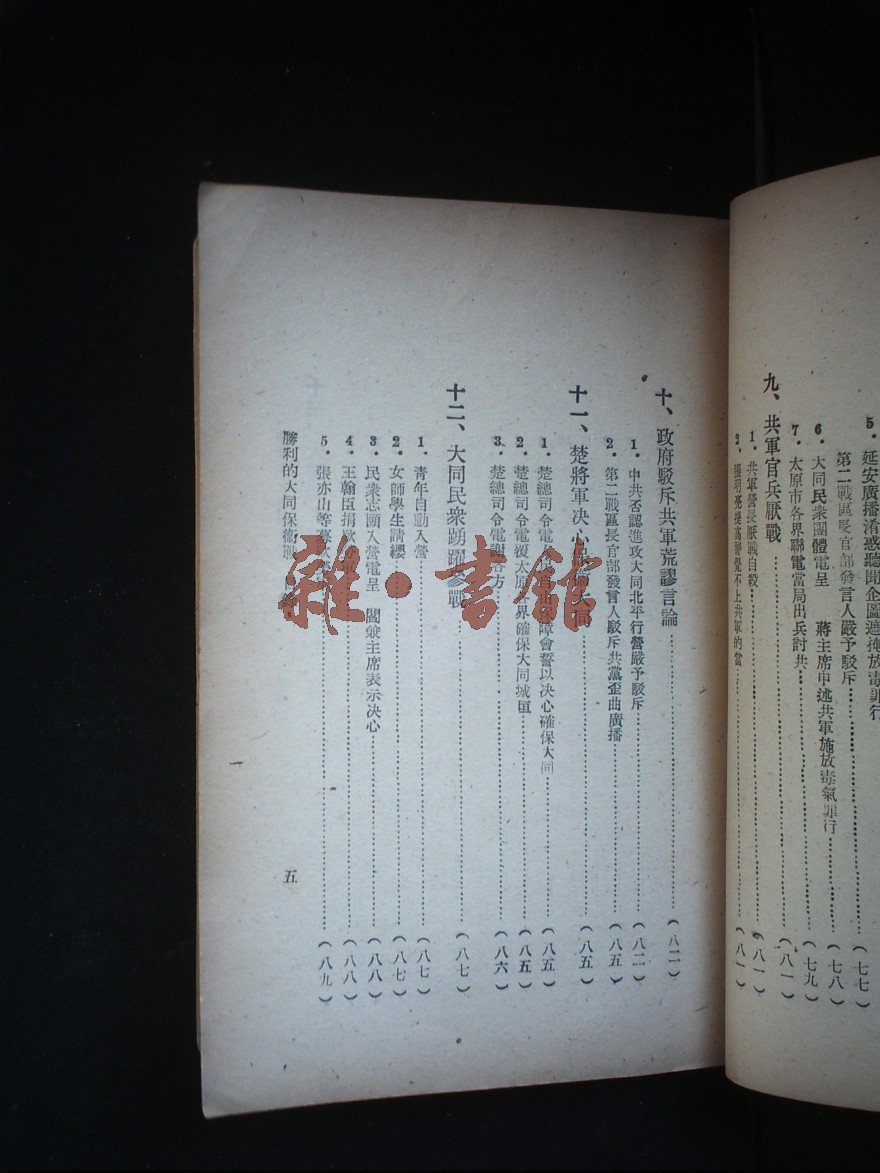 5．延安廣播淆惑聽聞企圖遮掩放毒罪行
第二戰區長官部發言人嚴予駁斥……（七七）
6．大同民衆團體電呈 蔣主席申述共軍施放毒氣罪行……（七八）
7．太原市各界聯電當局出兵討共……（七九）
九、共軍官兵厭戰……（八一）
1．共軍營長厭戰自殺……（八一）
2．明亮提高警覺不上共軍的當……（八一）
十、政府駁斥共軍荒謬言論……（八二）
1．中共否認進攻大同北平行營嚴予駁斥……（八二）
2．第二戰區長官部發言人駁斥共黨歪曲廣播……（八五）
十一、楚將軍决心大同……（八五）
1．楚總司令電障會誓以决心確保大同……（八五）
2．楚總司令電復太原界確保大同城垣……（八五）
3．楚總司令電謝各方……（八六）
十二、大同民衆踴躍參戰……（八七）
1．靑年自動入營……（八七）
2．女師學生請纓……（八七）
3．民衆志願入營電呈 閻兼主席表示决心……（八八）
4．王翰臣捐欵……（八八）
5．張亦山等募欵……（八九）
勝利的大同保衛戰
五
雜·書館